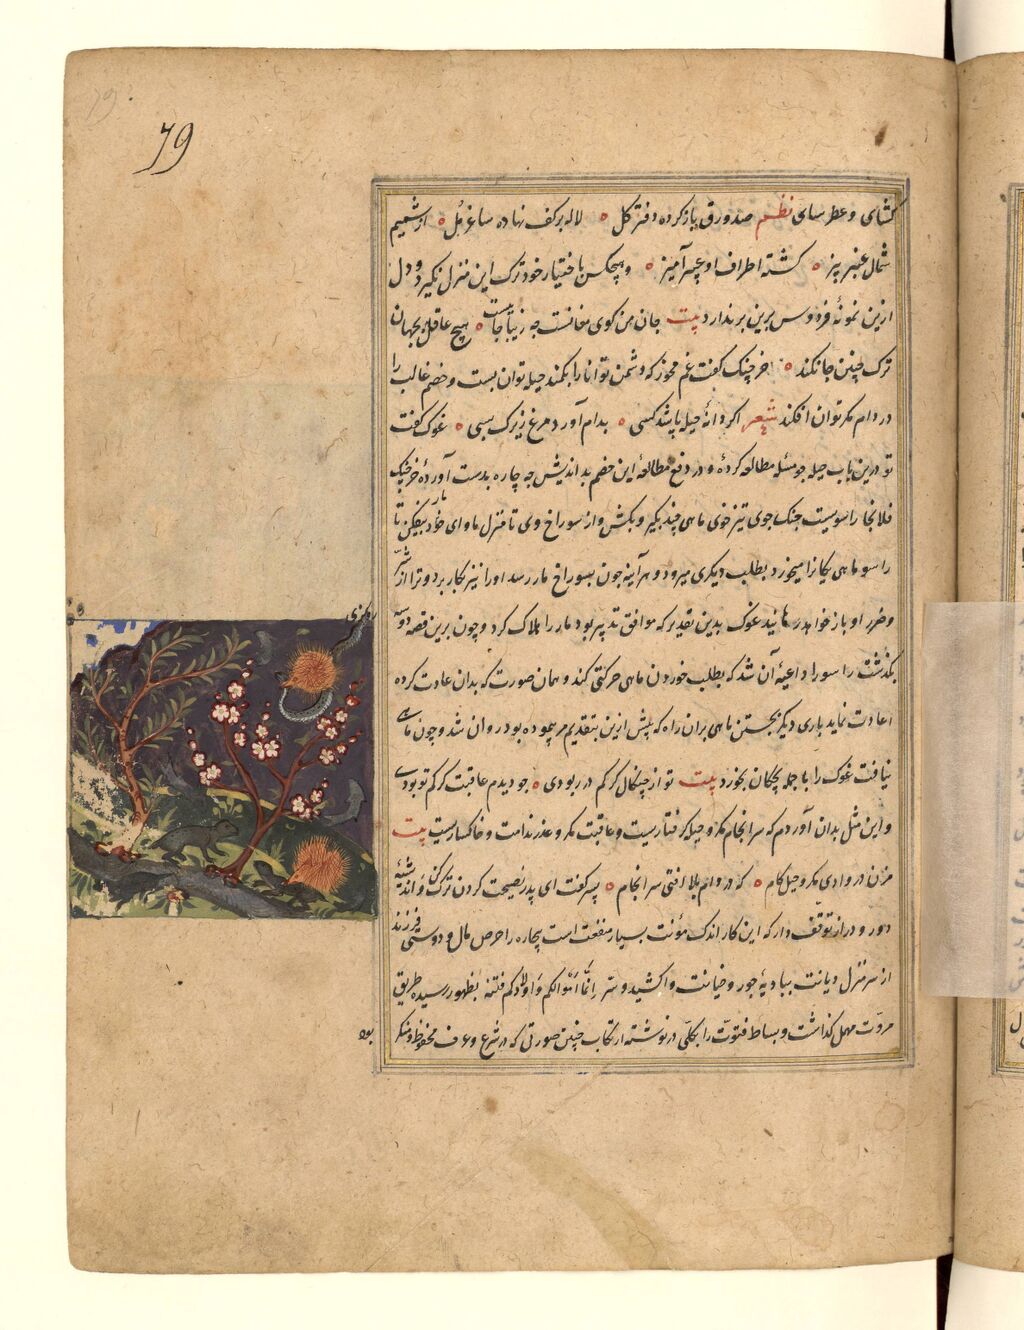 79
کشای و عطر سای نظم صد ورق باز کرده دفتر کل لاله بر کف نهاده ساغر مُل از شمیم
شمال عنبر بیز کشته اطراف او عبیر آمیز و هیچکس باختیار خود ترک این منزل نکیرد و دل
ازین نمونهٔ فردوس برین برندارد بیت جان من کوی مغانست چه زیبا جاییست هیچ عاقل بجهان
ترک چنین جا نکند خرچنک کفت غم مخور که دشمن توانا را بکمند حیله توان بست و خصم غالب را
در دام مکر توان افکند شعر اکر دانهٔ حیله پاشد کسی بدام آورد مرغ زیرک بسی غوک کفت
تو درین باب حیله جو مسئله مطالعه کردهٔ و در دفع مطالعهٔ این خصم بداندیش چه چاره بدست آوردهٔ خرچنک
فلانجا راسوییست جنک جوی تیز خوی ماهی چند بکیر و بکش و از سوراخ وی تا منزل ماوای مار خود بیفکن تا
راسو ماهی یکانرا میخورد بطلب دیکری میرود و هرآینه جون بسوراخ مار رسد او را نیز بکار برد و ترا از شر
و ضرر او باز خواهد رهانید غوک بدین تقدیر که موافق تدبیر بود مار را هلاک کرد و چون برین قصه دوسه روزی
بکذشت راسو را داعیهٔ آن شد که بطلب خوردن ماهی حرکتی کند و همان صورت که بدان عادت کرده
اعادت نماید باری دیکر بجستن ماهی بران راه که پیش ازین بتقدیم پیموده بود روان شد و چون ماهی
نیافت غوک را با جمله بچکان بخورد بیت تو از چنکال کرکم در ربودی جو دیدم عاقبت کرکم تو بودی
و این مثل بدان آوردم که سرانجام مکر و حیل کرفتاریست و عاقبت مکر و عذر ندامت و خاکساریست بیت
مزن در وادی مکر و حیل کام که در دام بلا افتی سرانجام پسر کفت ای پدر نصیحت کردن ترک کن و اندیشهٔ
دور و دراز توقف دار که این کار اندک مؤنت بسیار منفعت است بیچاره را حرص مال و دوستی فرزند
از سر منزل دیانت ببادیهٔ جور و خیانت واکشید و سّر اِنَّما اَموالکم وَاولادکم فتنهٌ بظهور رسیده طریق
مروّت مهمل کذاشت و بساط فتوّت را بکلّی درنوشته ارتکاب چنین صورتی که در شرع و عرف محظور و منکر
بود